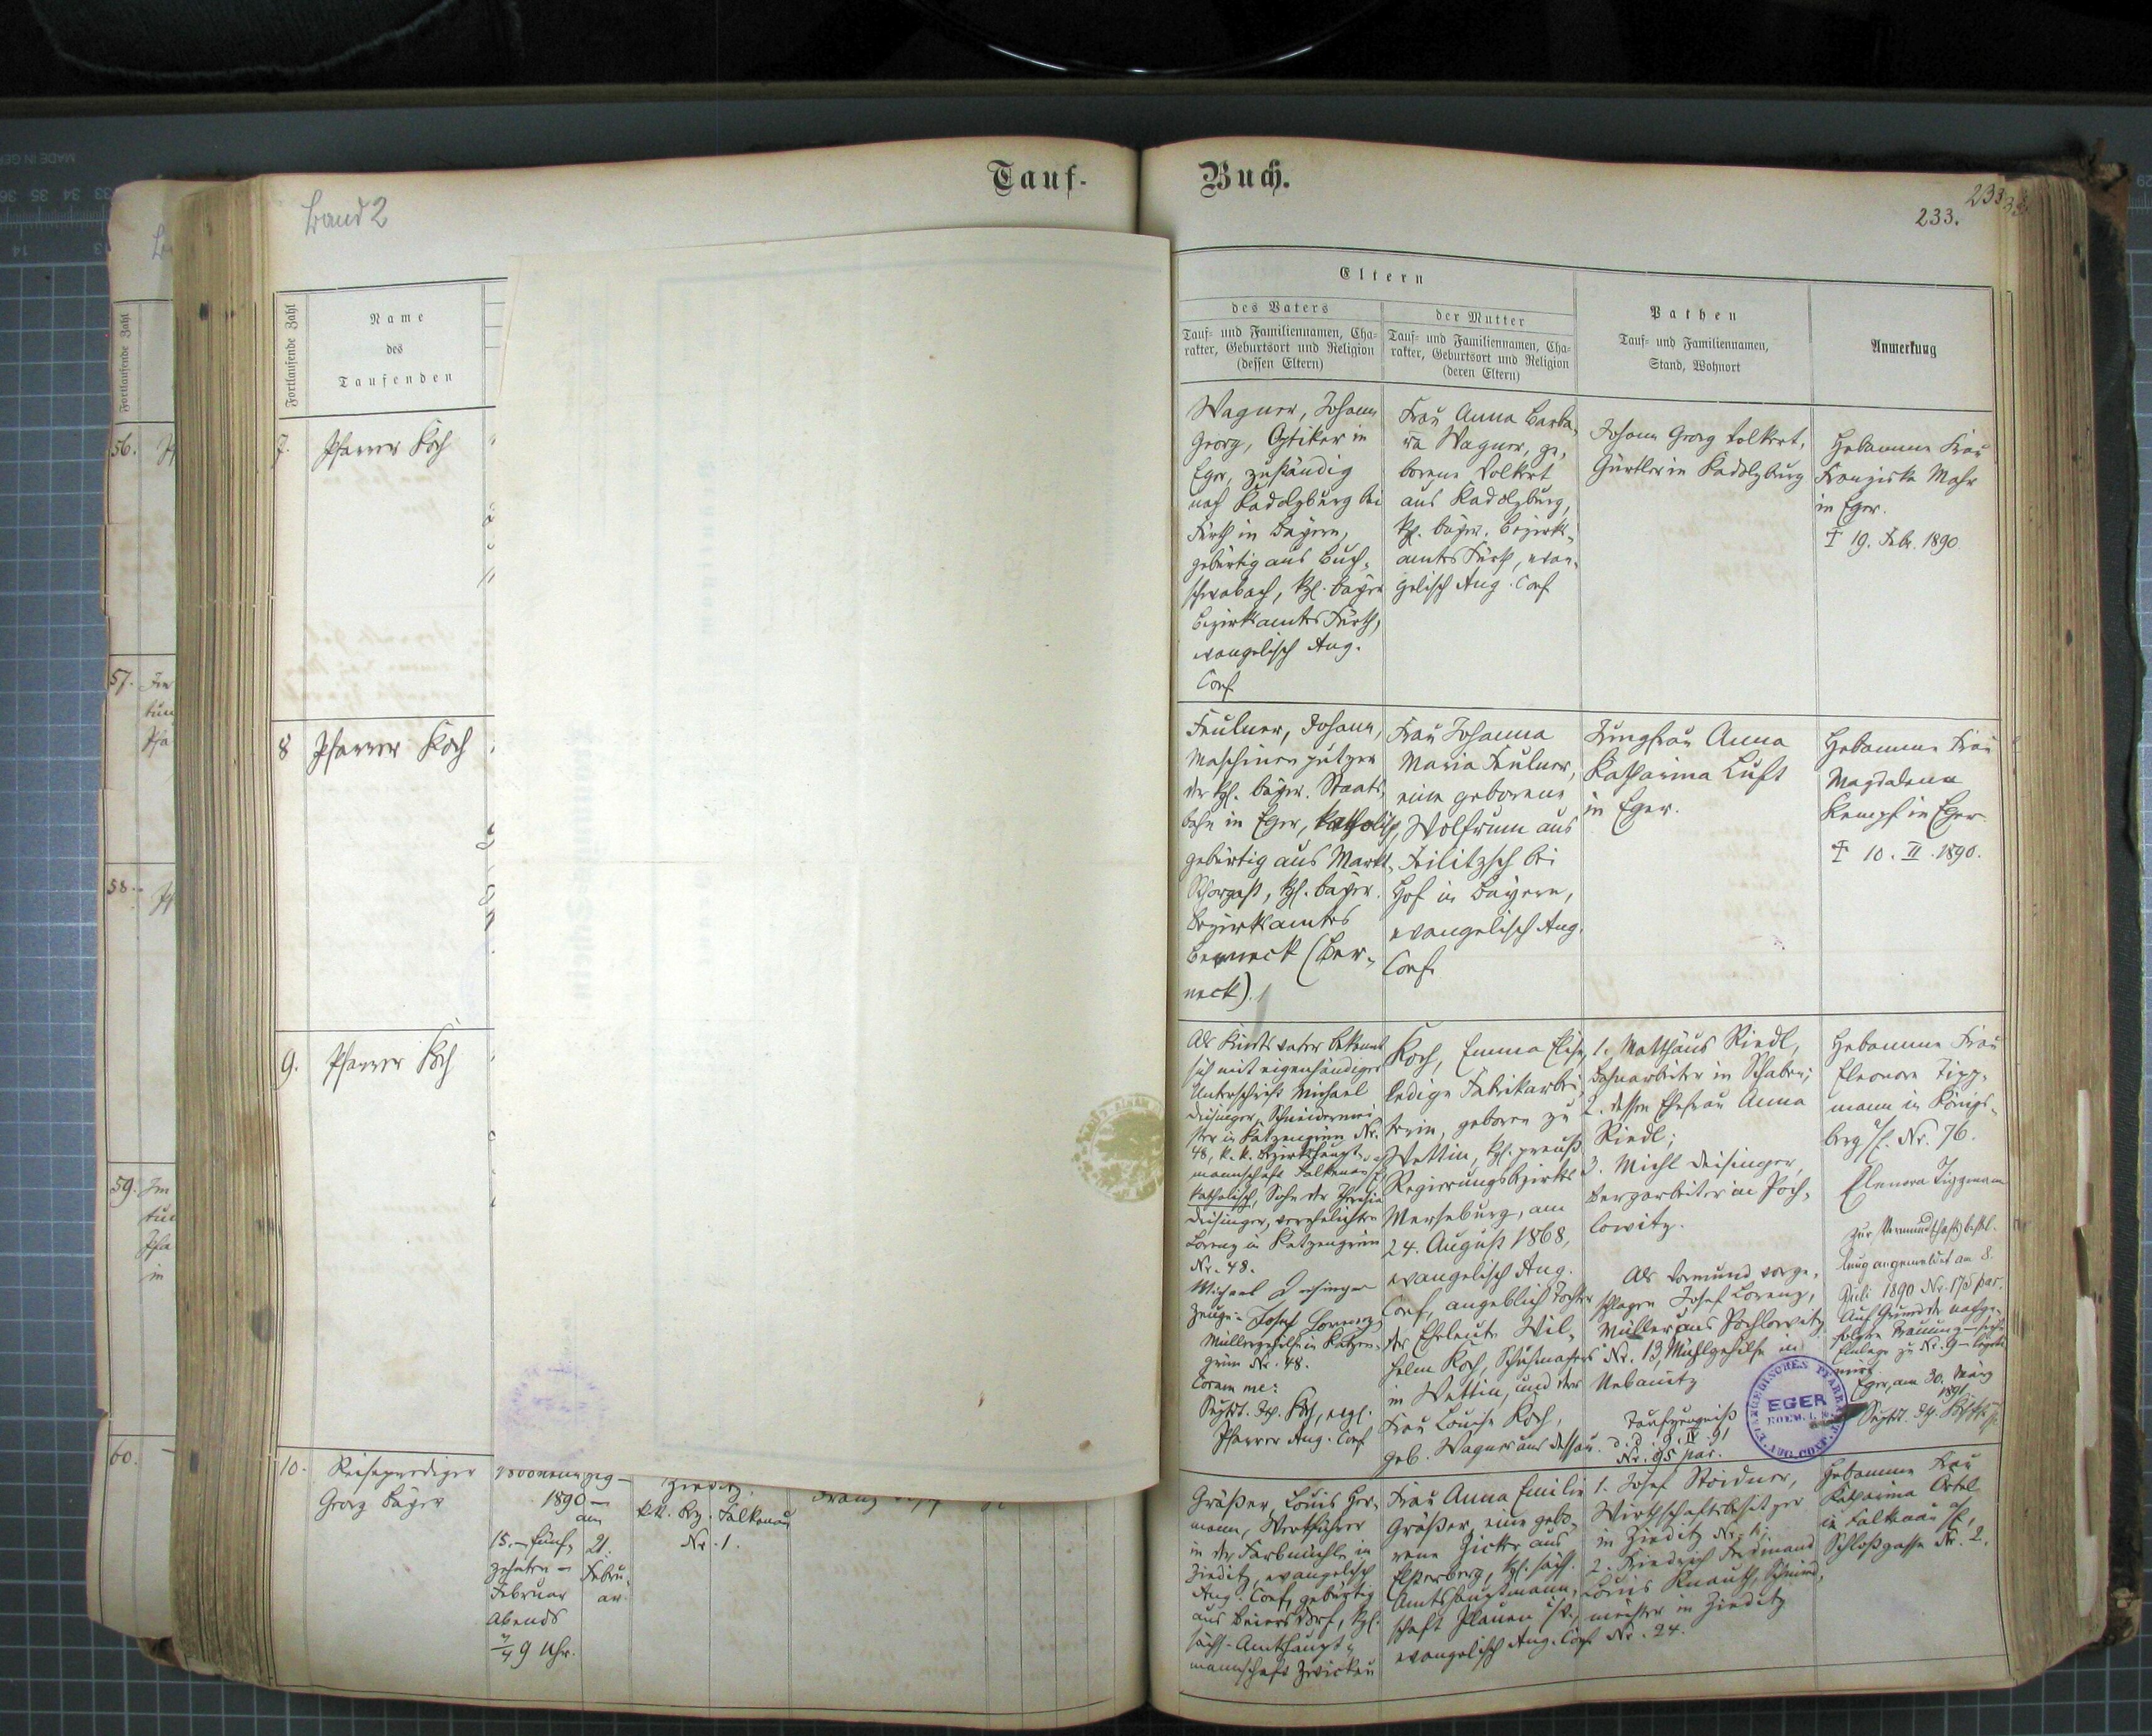 Tauf-
Buch.
Band 2
233.
Fortlaufende Zahl
Name
des
Taufenden
Eltern
des Vaters
Tauf- und Familiennamen, Cha-
rakter, Geburtsort und Religion
(dessen Eltern)
der Mutter
Tauf- und Familiennamen, Cha-
rakter, Geburtsort und Religion
(deren Eltern)
Pathen
Tauf- und Familiennamen,
Stand, Wohnort
Anmerkung
7.
Pfarrer Koch
Wagner, Johann
Georg, Optiker in
Eger, zuständig
nach Kadolzburg bei
Fürth in Bayern,
gebürtig aus Buch-
schwabach, kgl. bayer.
Bezirksamtes Fürth,
evangelisch Aug.
Conf.
Frau Anna Barba-
ra Wagner, ge-
borene Volkert
aus Kadolzburg,
kgl. bayer. Bezirks-
amtes Fürth, evan-
gelisch Aug. Conf
Johann Georg Volkert,
Gürtler in Kadolzburg
Hebamme Frau
Franziska Mahr
in Eger.
† 19. Febr. 1890
8
Pfarrer Koch
Feulner, Johann,
Maschinenputzer
der kgl. bayer. Staats-
bahn in Eger, katholisch,
gebürtig aus Markt-
Schorgast, kgl. bayer.
Bezirksamtes
Berneck (Ber-
neck).
Frau Johanna
Maria Feulner,
eine geborene
Wolfrum aus
Feilitzsch bei
Hof in Bayern,
evangelisch Aug.
Conf.
Jungfrau Anna
Katharina Luft
in Eger.
Hebamme Frau
Magdalena
Kempf in Eger.
† 10. II. 1890.
9.
Pfarrer Koch
Als Kindsvater bekennt
sich mit eigenhändiger
Unterschrift Michael
Deisinger, Schneidermei-
ster in Katzengrün Nr.
48, k. k. Bezirkshaupt-
mannschaft Falkenau,
katholisch, Sohn der Theresia
Deisinger, verehelichten
Lorenz in Katzengrün
Nr. 48.
Michael Deisinger
Zeuge: Josef Lorenz,
Müllergehilfe in Katzen-
grün Nr. 48.
Coram me:
Koch, evgl.
Pfarrer Aug. Conf
Koch, Emma Elise,
ledige Fabrikarbei-
terin, geboren zu
Wettin, kgl. preuß.
Regierungsbezirkes
Merseburg, am
24. August 1868,
evangelisch Aug.
Conf, angeblich Tochter
der Eheleute Wil-
helm Koch, Schuhmachers
in Wettin, und der
Frau Louise Koch,
geb. Wagner aus Dessau.
1. Matthäus Riedl,
Bahnarbeiter in Schaben;
2. dessen Ehefrau Anna
Riedl;
3. Michl Deisinger,
Bergarbeiter in Poch-
lowitz.
Als Vormund vorge-
schlagen Josef Lorenz,
Müller aus Pochlowitz
Nr. 13, Mühlgehilfe in
Nebanitz
Taufzeugniß
d. d. 9. IV. 91
Nr. 95 par.
Hebamme Frau
Eleonore Tipp-
mann in Königs-
berg a/E. Nr. 76.
Elenora Tippmann
Zur Vormundschaftsbestel-
lung angemeldet am 8.
Juli 1890 Nr. 175 par.
Auf Grund der nachge-
folgten Trauung — siehe
Einlage zu Nr. 9 — legiti-
mirt
Eger, am 30. März
1891
EVANGELISCHES PFARRAMT
EGER
10.
Reiseprediger
Georg Bayer
1890 —
am
15. — fünf-
zehnten —
Februar
Abends
¾ 9 Uhr.
21.
Febru-
ar
Zieditz,
k.k. Bez. Falkenau
Nr. 1.
Gräßer, Louis Her-
mann, Werkführer
in der Farbmühle in
Zieditz, evangelisch
Aug. Conf, gebürtig
aus Beiersdorf, kgl.
sächs. Amtshaupt-
mannschaft Zwickau
Frau Anna Emilie
Gräßer, eine gebo-
rene Zicker aus
Elsterberg, kgl. sächs.
Amtshauptmann-
schaft Plauen i/V.,
evangelisch Aug. Conf
1. Josef Stoidner,
Wirthschaftsbesitzer
in Zieditz Nr. 1;
2. Friedrich Ferdinand
Louis Knauth, Schmied-
meister in Zieditz
Nr. 24.
Hebamme Frau
Katharina Örtel
in Falkenau a/E,
Schloßgasse Nr. 2.
56.
57.
58.
59.
60.